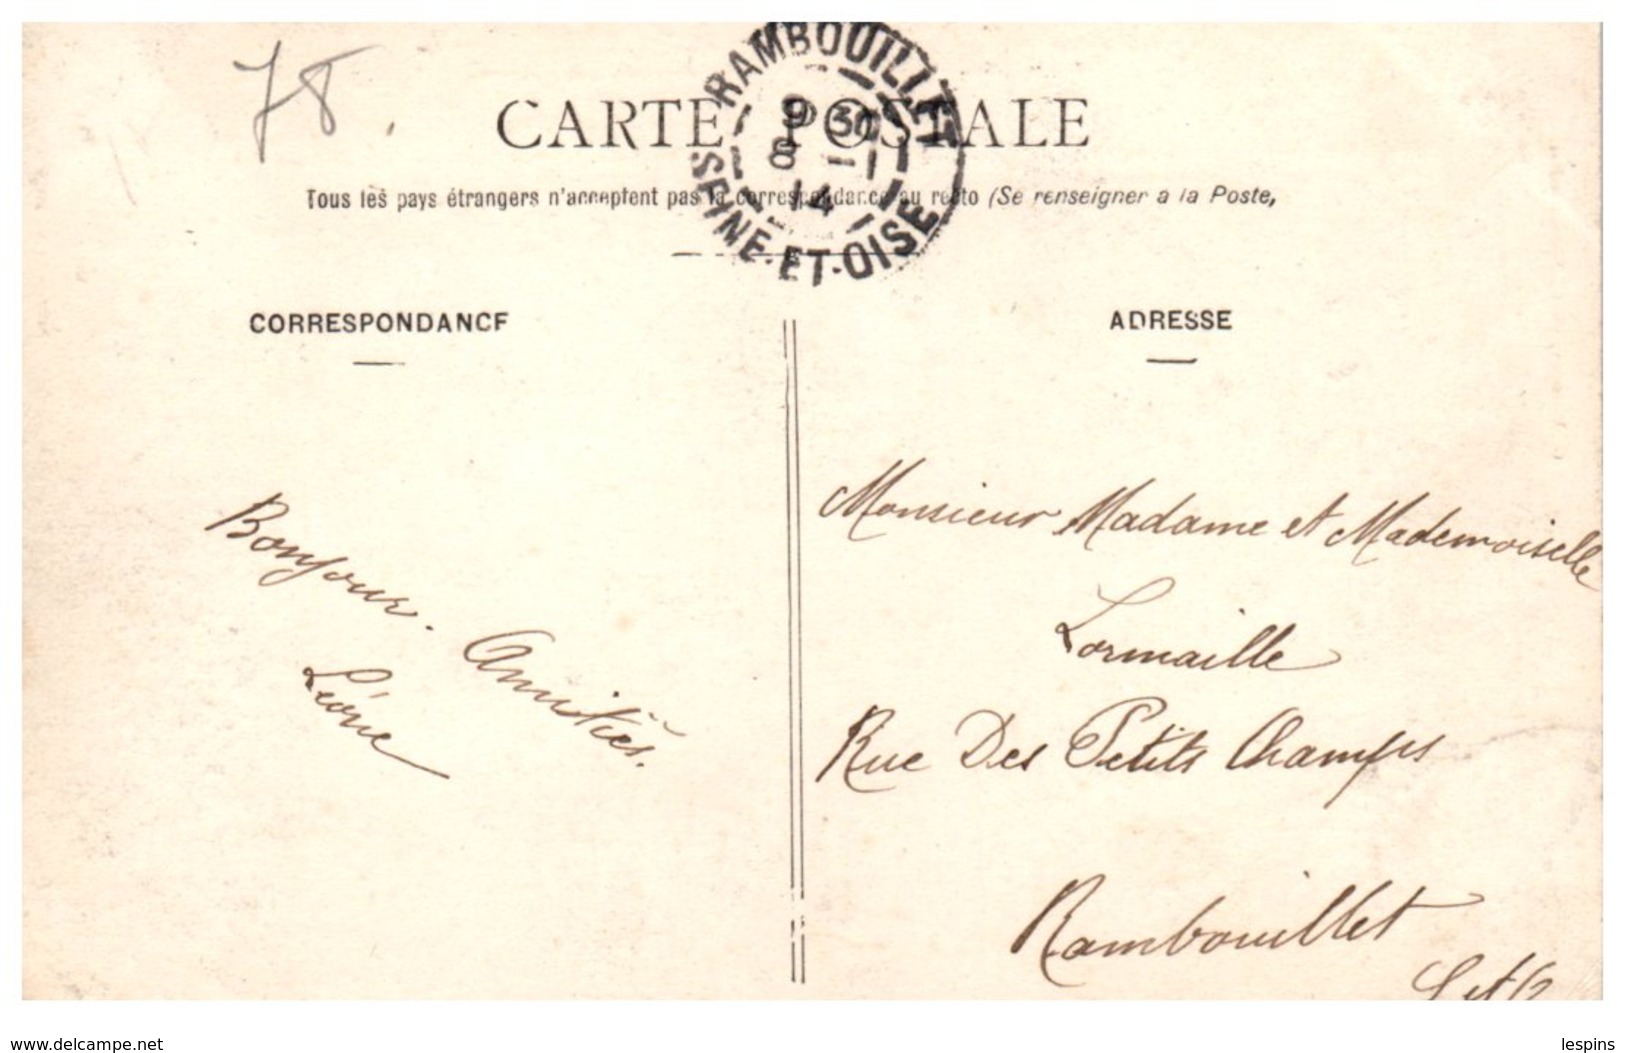 78.
RAMBOUILLET
9 30
8 - 1
14
SEINE-ET-OISE
CARTE POSTALE
Tous les pays étrangers n'acceptent pas la correspondance au recto (Se renseigner a la Poste,
CORRESPONDANCE
ADRESSE
Bonjour. Amitiés.
Léone
Monsieur Madame et Mademoiselle
Lormaille
Rue Des Petits Champs
Rambouillet
S et O
www.delcampe.net
lespins